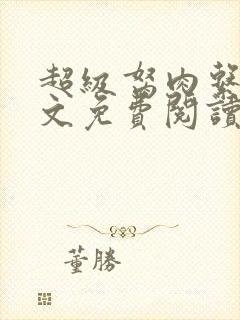 超級磐肉雞
文免費閱讀
董勝